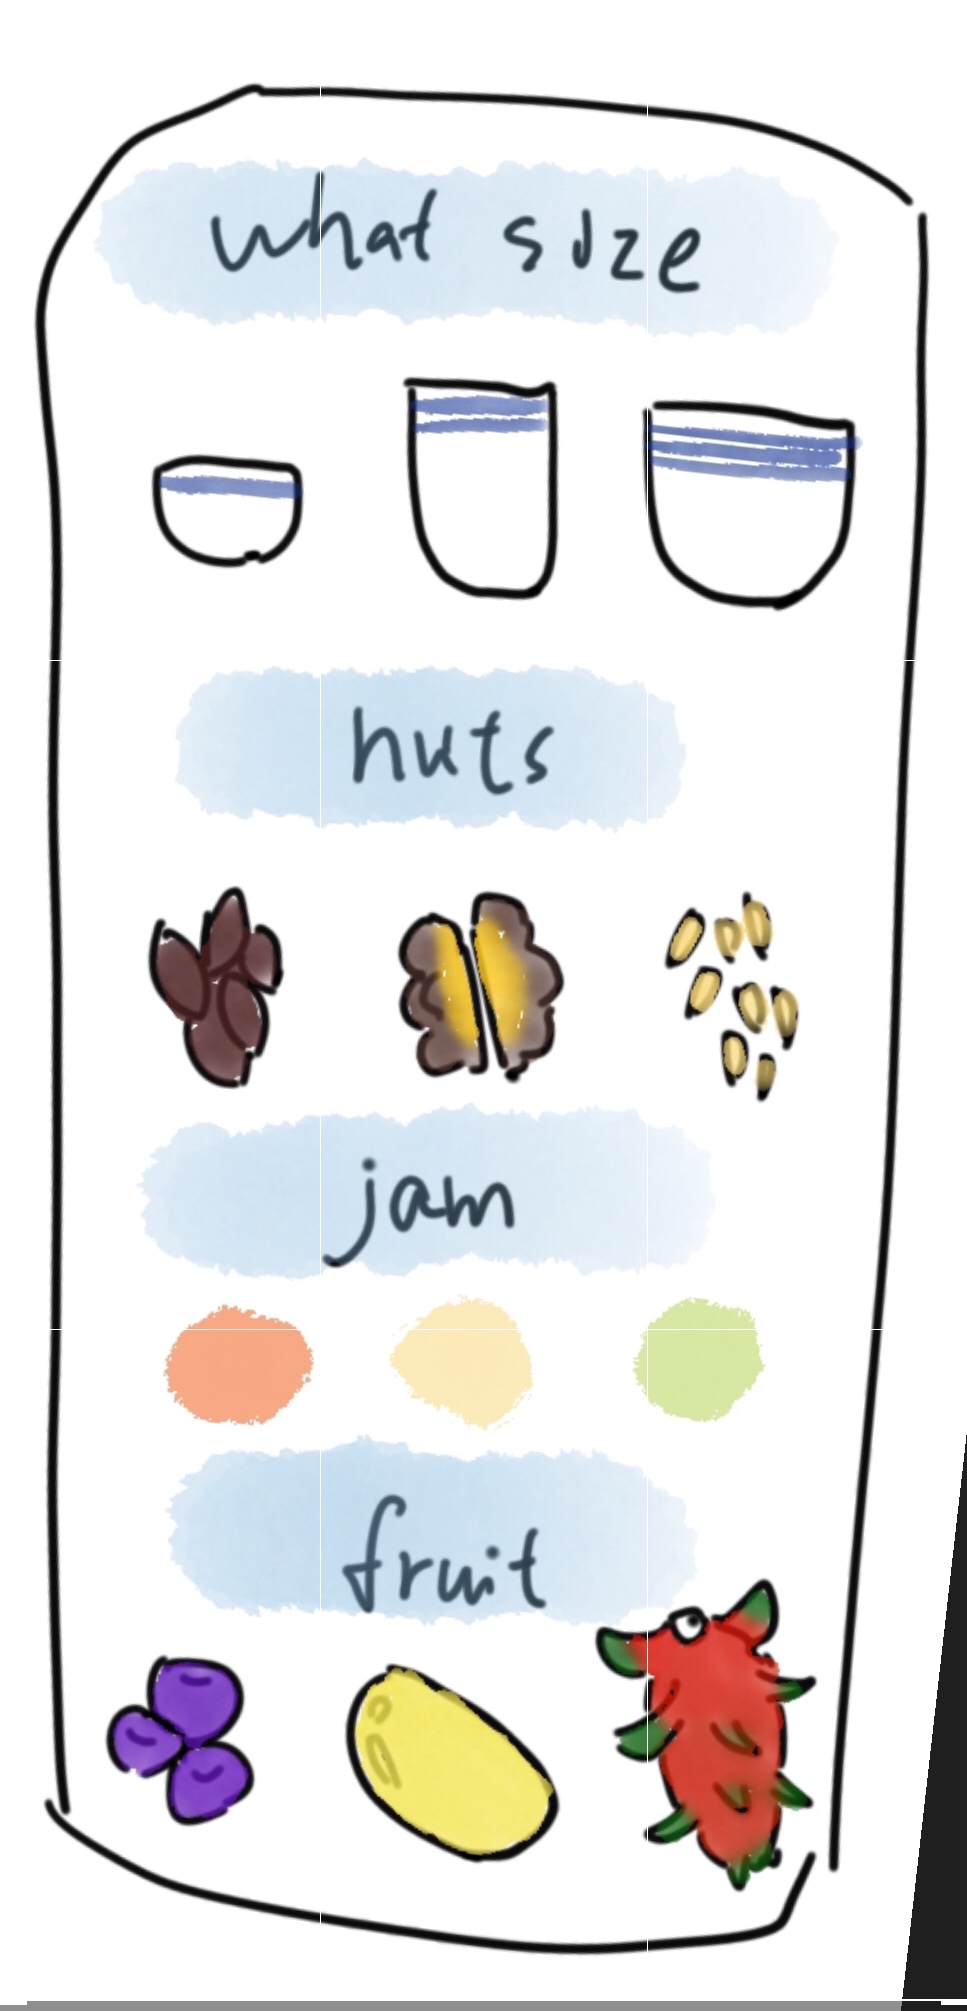 what size
nuts
jam
fruit